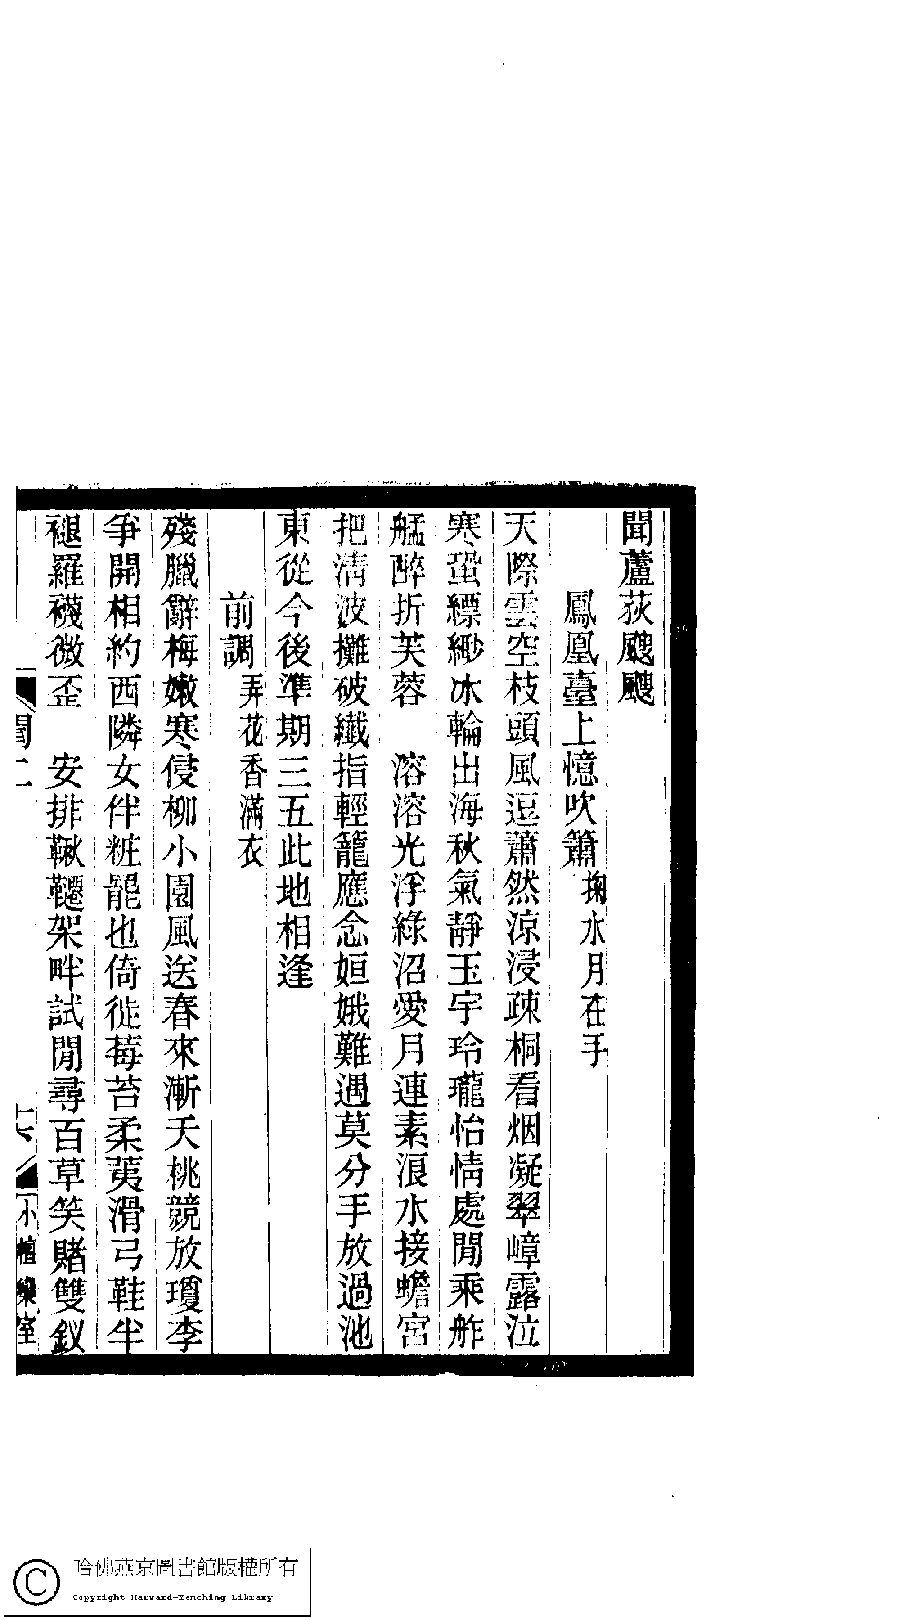 聞蘆荻颼颼
鳳凰臺上憶吹簫 掬水月在手
天際雲空枝頭風逗蕭然涼浸疎桐看烟凝翠嶂露泣
寒蛩縹緲冰輪出海秋氣靜玉宇玲瓏怡情處閒乘舴
艋醉折芙蓉 溶溶光浮綠沼愛月連素浪水接蟾宮
把清波攤破纖指輕籠應念姮娥難遇莫分手放過池
東從今後準期三五此地相逢
前調 弄花香滿衣
殘臘辭梅嫩寒侵柳小園風送春來漸夭桃競放瓊李
爭開相約西隣女伴粧罷也倚徙莓苔柔荑滑弓鞋半
褪羅襪微歪 安排鞦韆架畔試閒尋百草笑賭雙釵
閨二
十六
小檀欒室
哈佛燕京圖書館版權所有
Copyright Harvard-Yenching Library